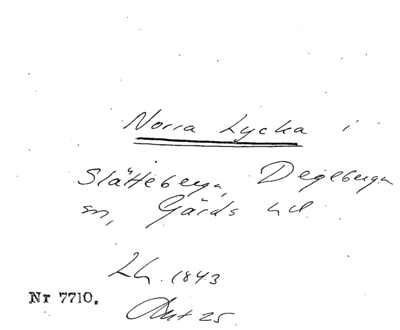 Norra Lycka i
Slätteberga, Degeberga
sn, Gärds hd
Lh. 1843
Akt 25
Nr 7710.